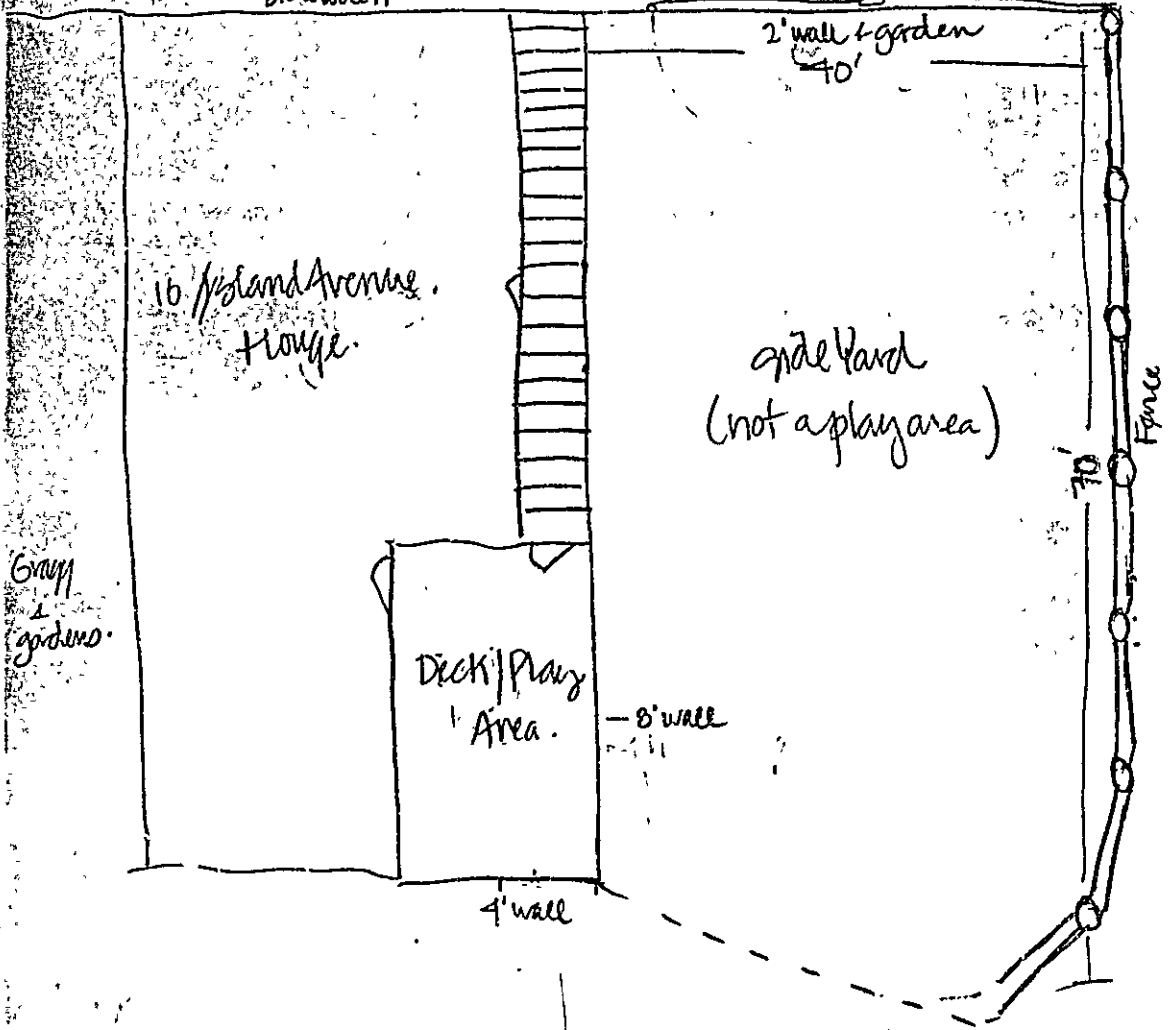 2' wall & garden
40'
16 Island Avenue.
House.
Side Yard
(not a play area)
Fence
70'
Grass
&
gardens.
Deck/Play
Area.
8' wall
4' wall